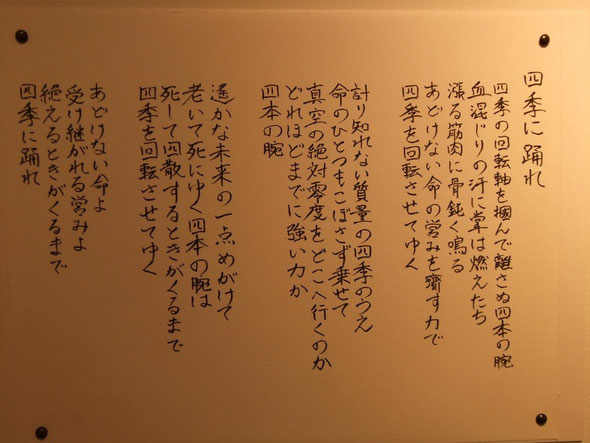 四季に踊れ
四季の回転軸を掴んで離さぬ四本の腕
血混じりの汗に掌は燃えたち
漲る筋肉に骨鈍く鳴る
あどけない命の営みを齎す力で
四季を回転させてゆく
計り知れない質量の四季のうえ
命のひとつもこぼさず乗せて
真空の絶対零度をどこへ行くのか
どれほどまでに強い力か
四本の腕
遥かな未来の一点めがけて
老いて死にゆく四本の腕は
死して四散するときがくるまで
四季を回転させてゆく
あどけない命よ
受け継がれる営みよ
絶えるときがくるまで
四季に踊れ